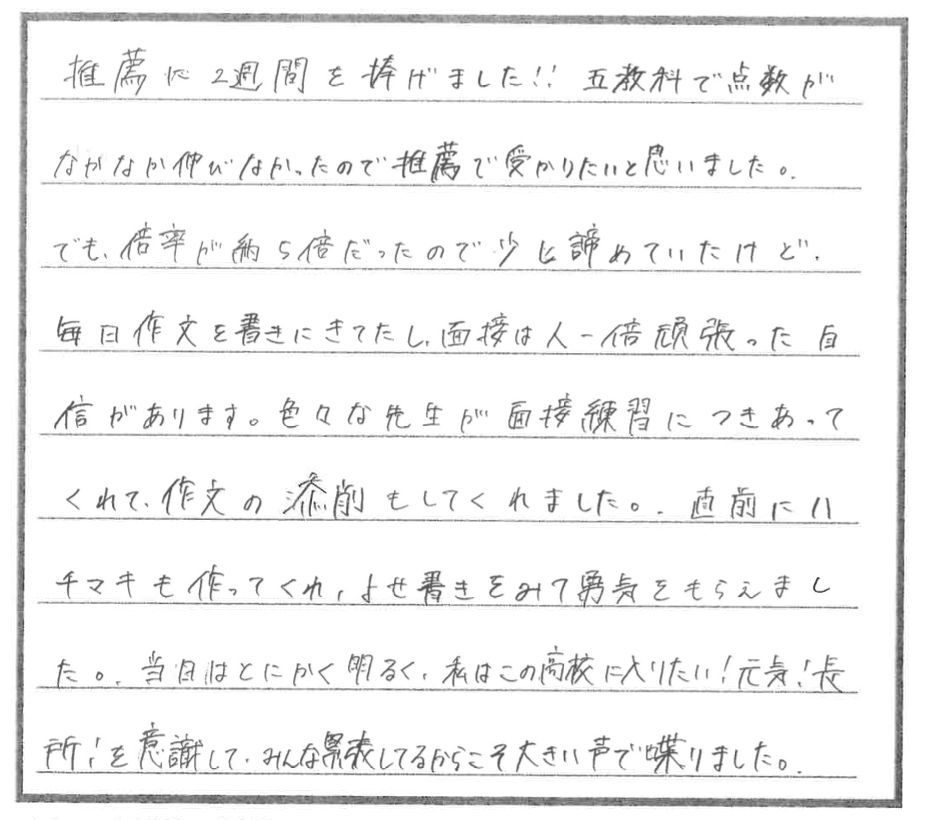 推薦に2週間を捧げました!! 五教科で点数が
なかなか伸びなかったので推薦で受かりたいと思いました。
でも、倍率が約5倍だったので少し諦めていたけど、
毎日作文を書きにきてたし、面接は人一倍頑張った自
信があります。色々な先生が面接練習につきあって
くれて、作文の添削もしてくれました。直前にハ
チマキも作ってくれ、よせ書きをみて勇気をもらえまし
た。当日はとにかく明るく、私はこの高校に入りたい!元気!長
所!を意識して、みんな緊張してるからこそ大きい声で喋りました。